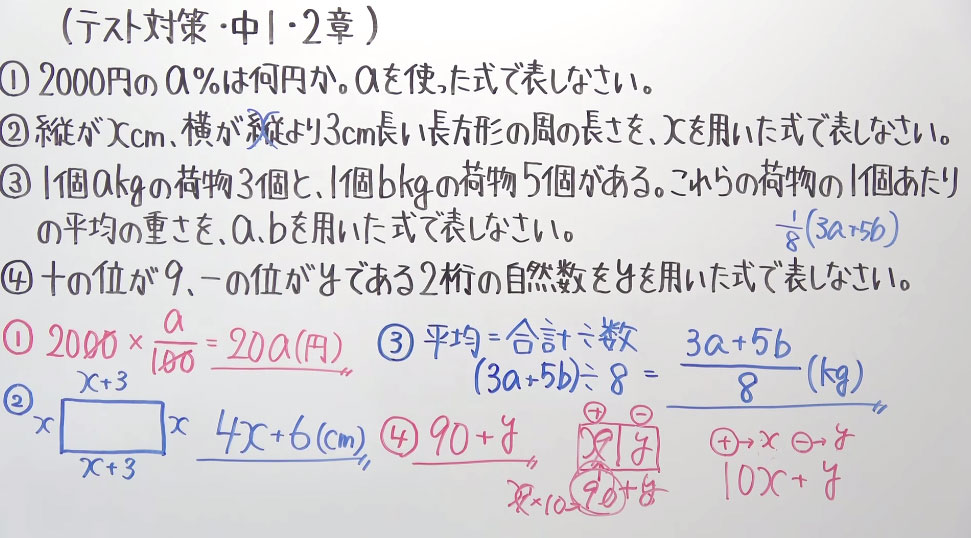 (テスト対策・中1・2章)
① 2000円のa%は何円か。aを使った式で表しなさい。
② 縦がxcm、横が縦より3cm長い長方形の周の長さを、xを用いた式で表しなさい。
③ 1個akgの荷物3個と、1個bkgの荷物5個がある。これらの荷物の1個あたり
の平均の重さを、a、bを用いた式で表しなさい。
1/8(3a+5b)
④ 十の位が9、一の位がyである2桁の自然数をyを用いた式で表しなさい。
① 2000 × a/100 = 20a(円)
② x+3
x x
x+3
4x+6(cm)
③ 平均=合計÷数
(3a+5b)÷8 = (3a+5b)/8 (kg)
④ 90+y
⊕ ⊖
9 y
×10 90+y
⊕→x ⊖→y
10x+y